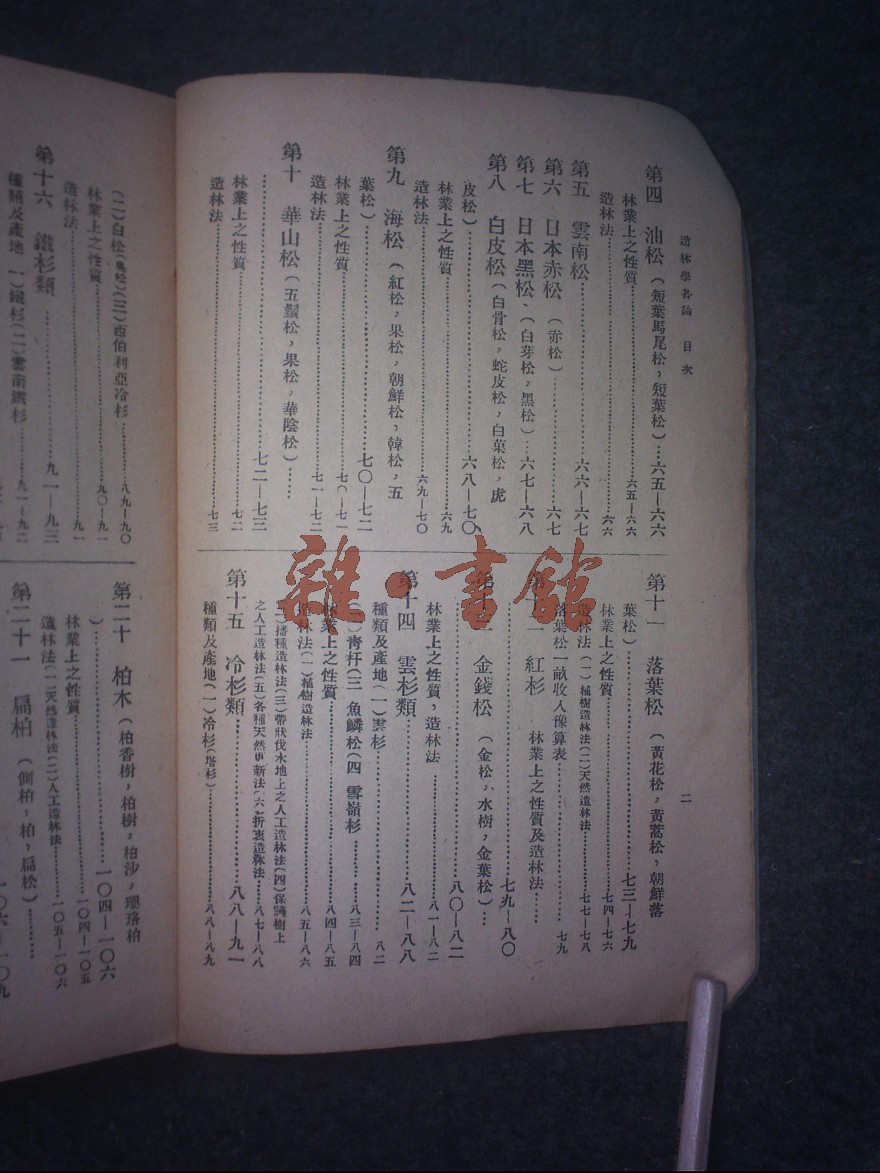 造林學各論 目次
二
第四 油松（短葉馬尾松，短葉松）…六五—六六
林業上之性質…六五—六六
造林法…六六
第五 雲南松…六六—六七
第六 日本赤松（赤松）…六七
第七 日本黑松（白芽松，黑松）…六七—六八
第八 白皮松（白骨松，蛇皮松，白菓松，虎
皮松）…六八—七〇
林業上之性質…六九
造林法…六九—七〇
第九 海松（紅松，果松，朝鮮松，韓松，五
葉松）…七〇—七二
林業上之性質…七〇—七一
造林法…七一—七二
第十 華山松（五鬚松，果松，華陰松）…
…七二—七三
林業上之性質…七二
造林法…七三
第十一 落葉松（黃花松，黃蒿松，朝鮮落
葉松）…七三—七九
林業上之性質…七四—七六
造林法（一）植樹造林法（二）天然造林法…七七—七八
落葉松一畝收入豫算表…七九
第十二 紅杉 林業上之性質及造林法…
…七九—八〇
第十三 金錢松（金松，水樹，金葉松）…
…八〇—八二
林業上之性質，造林法…八一—八二
第十四 雲杉類…八二—八八
種類及產地（一）雲杉…八二
（二）青杆（三）魚鱗松（四）雪嶺杉…八三—八四
林業上之性質…八四—八五
造林法（一）植樹造林法…八五—八六
（二）播種造林法（三）帶狀伐木地上之人工造林法（四）保殘樹上
之人工造林法（五）各種天然更新法（六）折衷造林法…八七—八八
第十五 冷杉類…八八—九一
種類及產地（一）冷杉（塔杉）…八八—八九
（二）白松（臭松）（三）西伯利亞冷杉…八九—九〇
林業上之性質…九〇—九一
造林法…九一
第十六 鐵杉類…九一—九三
種類及產地（一）鐵杉（二）雲南鐵杉…九一—九二
第二十 柏木（柏香樹，柏樹，柏沙，瓔珞柏
）…一〇四—一〇六
林業上之性質…一〇四—一〇五
造林法（一）天然造林法（二）人工造林法…一〇五—一〇六
第二十一 扁柏（側柏，柏，扁松）…
…一〇六—一〇九
雜·書館